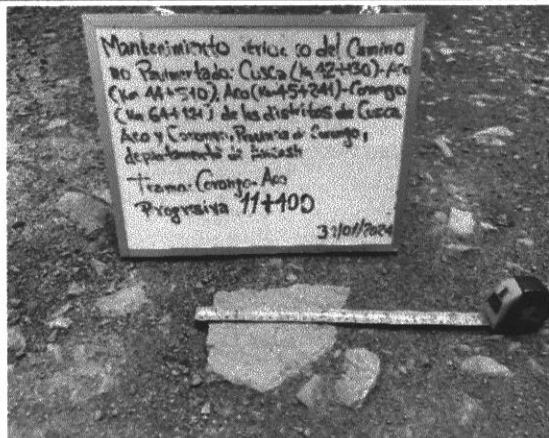 Mantenimiento del Camino
no Pavimentado: Cusca (Km 42+130)-Aco
(Km 44+510), Aco (Km 45+241)-Corongo
(Km 64+121) de los distritos de Cusca
Aco y Corongo, Provincia de Corongo,
departamento de Ancash
Tramo: Corongo-Aco
Progresiva 11+100
/01/2024